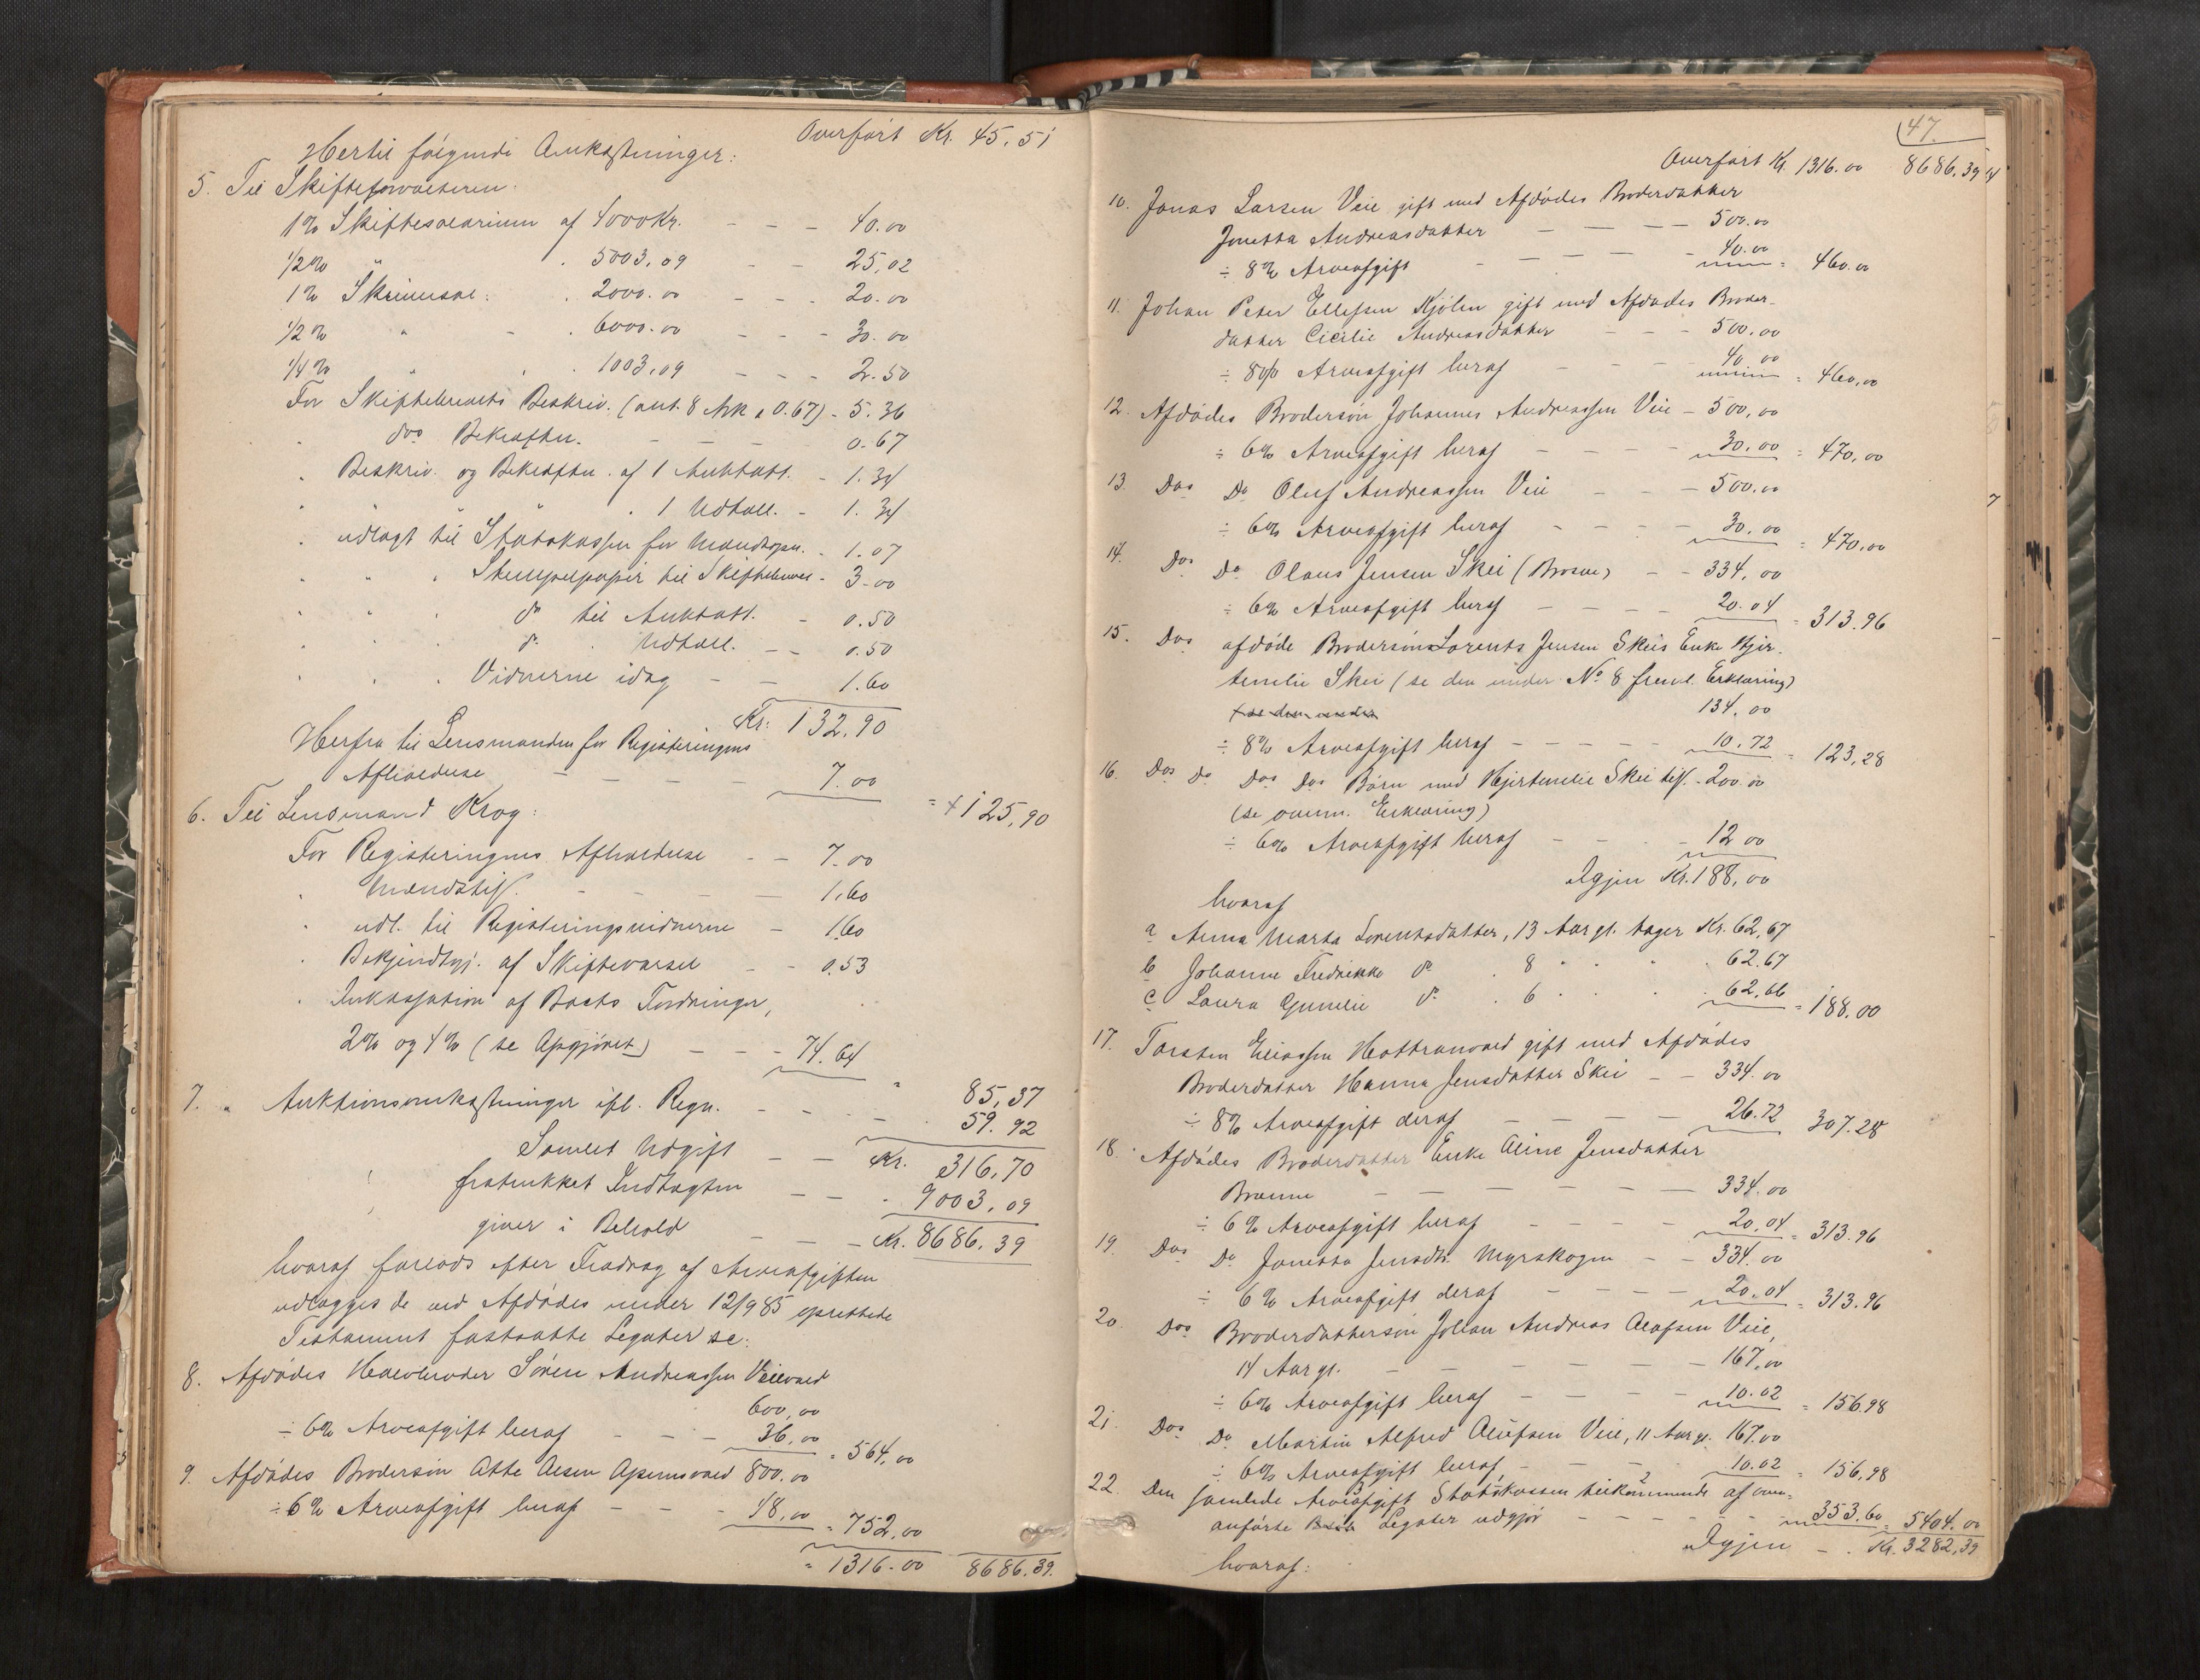 Overført Kr. 45,51
Hertil følgende Omkostninger:
5. Til Skifteforvalteren.
1% Skiftesalarium af 4000 Kr. - - - 40.00
1/2% " . 5003,09 - - 25,02
1% Skriversal: . 2000.00 - - - 20.00
1/2% " - . 6000.00 - - - 30.00
1/4% " . . 1003,09 - - - 2.50
For Skiftebrevets Beskriv. (ant. 8 Ark a 0.67) - 5.36
do Bekræftn. - - - 0.67
" Beskriv. og Bekræftn. af 1 Auktatt. - 1.34
" " " . 1 Udtall. - 1.34
" udlagt til Statskassen for Mandtspn. - 1.07
" " " Stempelpapir til Skiftebrevet - 3.00
" " " do til Auktatt. - 0.50
" " " do . Udtall. - - 0.50
" " " Vidnerne idag - - 1.60
Kr: 132,90
Herfra til Lensmanden for Registeringens
Afholdelse - - - - 7.00
= 125,90
6. Til Lensmand Krog:
For Registeringens Afholdelse - - 7.00
" Mandstiss. - - - - 1,60
" udl. til Registeringsvidnerne - 1.60
" Bekjendtgj. af Skiftevarsel - - 0.53
" Inkassation af Boets Fordringer,
2% og 4% (se Opgjøret) - - - 74.64
" 85,37
7. " Auktionsomkostninger ifl. Regn. - - - - 59.92
Samlet Udgift - - Kr. 316,70
fratrukket Indtægten - - - 9003,09
giver i Behold - - - Kr. 8686,39
hvoraf forlods efter Fradrag af Arveafgiften
udlægges de ved Afdødes under 12/9 85 oprettede
Testament fastsatte Legater se:
8. Afdødes Halvbroder Søren Andreassen Veievald
600,00
÷ 6% Arveafgift heraf - - - 36,00 = 564,00
9. Afdødes Brodersøn Atte Olsen Aspemsvald 800.00
÷ 6% Arveafgift heraf - - - 48,00 = 752,00
= 1316.00 8686.39.
47.
Overført Kr. 1316.00 8686,39
10. Jonas Larsen Veie gift med Afdødes Broderdatter
Jonetta Andreasdatter - - - - 500.00
÷ 8% Arveafgift - - - - - 40.00 = 460.00
11. Johan Peter Ellefsen Kjølen gift med Afdødes Broder-
datter Cicilie Andreasdatter - - - 500.00
÷ 8% Arveafgift heraf - - - 40.00 = 460,00
12. Afdødes Brodersøn Johannes Andreassen Veie - 500,00
÷ 6% Arveafgift heraf - - - - 30.00 = 470,00
13. Dos Do Oluf Andreassen Veie - - - 500.00
÷ 6% Arveafgift heraf - - - - 30.00 = 470,00
14. Dos Do Olaus Jensen Skei (Brosve) - - 334,00
÷ 6% Arveafgift heraf - - - - 20.04 = 313.96
15. Dos afdøde Brodersøns Lorents Jensen Skeis Enke Hjer-
temelie Skei (se den under No 8 freml. Erklæring)
(se den under 134.00
÷ 8% Arveafgift heraf - - - - - 10.72 = 123,28
16. Dos do Dos Dos Børn med Hjertemelie Skei tilf. - 200.00
(se ovenn. Erklæring)
÷ 6% Arveafgift heraf - - - 12 00
Igjen Kr. 188,00
hvoraf
a Anna Marta Lorentsdatter, 13 Aar gl. tager Kr. 62,67
b Johanne Fredrikke do . 8 " " " 62.67
c Laura Gunelie do . 6 " " " 62,66 = 188.00
17. Torsten Eliassen Hattranvald gift med Afdødes
Broderdatter Hanna Jensdatter Skei - - 334.00
÷ 8% Arveafgift deraf - - - - 26.72 307.28
18. Afdødes Broderdatter Enke Aline Jensdatter
Brænne - - - - - 334.00
÷ 6% Arveafgift heraf - - - - 20,04 = 313.96
19. Dos Do Jonetta Jensdtr. Myrskogen - - 334.00
÷ 6% Arveafgift deraf - - - - 20.04 = 313.96
20. Dos Broderdattersøn Johan Andreas Olafsen Veie,
14 Aar gl. - - - - - 167,00
÷ 6% Arveafgift heraf - - - - 10.02 = 156.98
21. Dos Do Martin Alfred Olufsen Veie, 11 Aar gl. 167.00
÷ 6% Arveafgift heraf - - - - 10.02 = 156,98
22. Den samlede Arveafgift Statskassen tilkommende af oven-
anførte Legater udgjør - - - - - 353.60 = 5404.00
Igjen - . Kr. 3282,39
hvoraf: